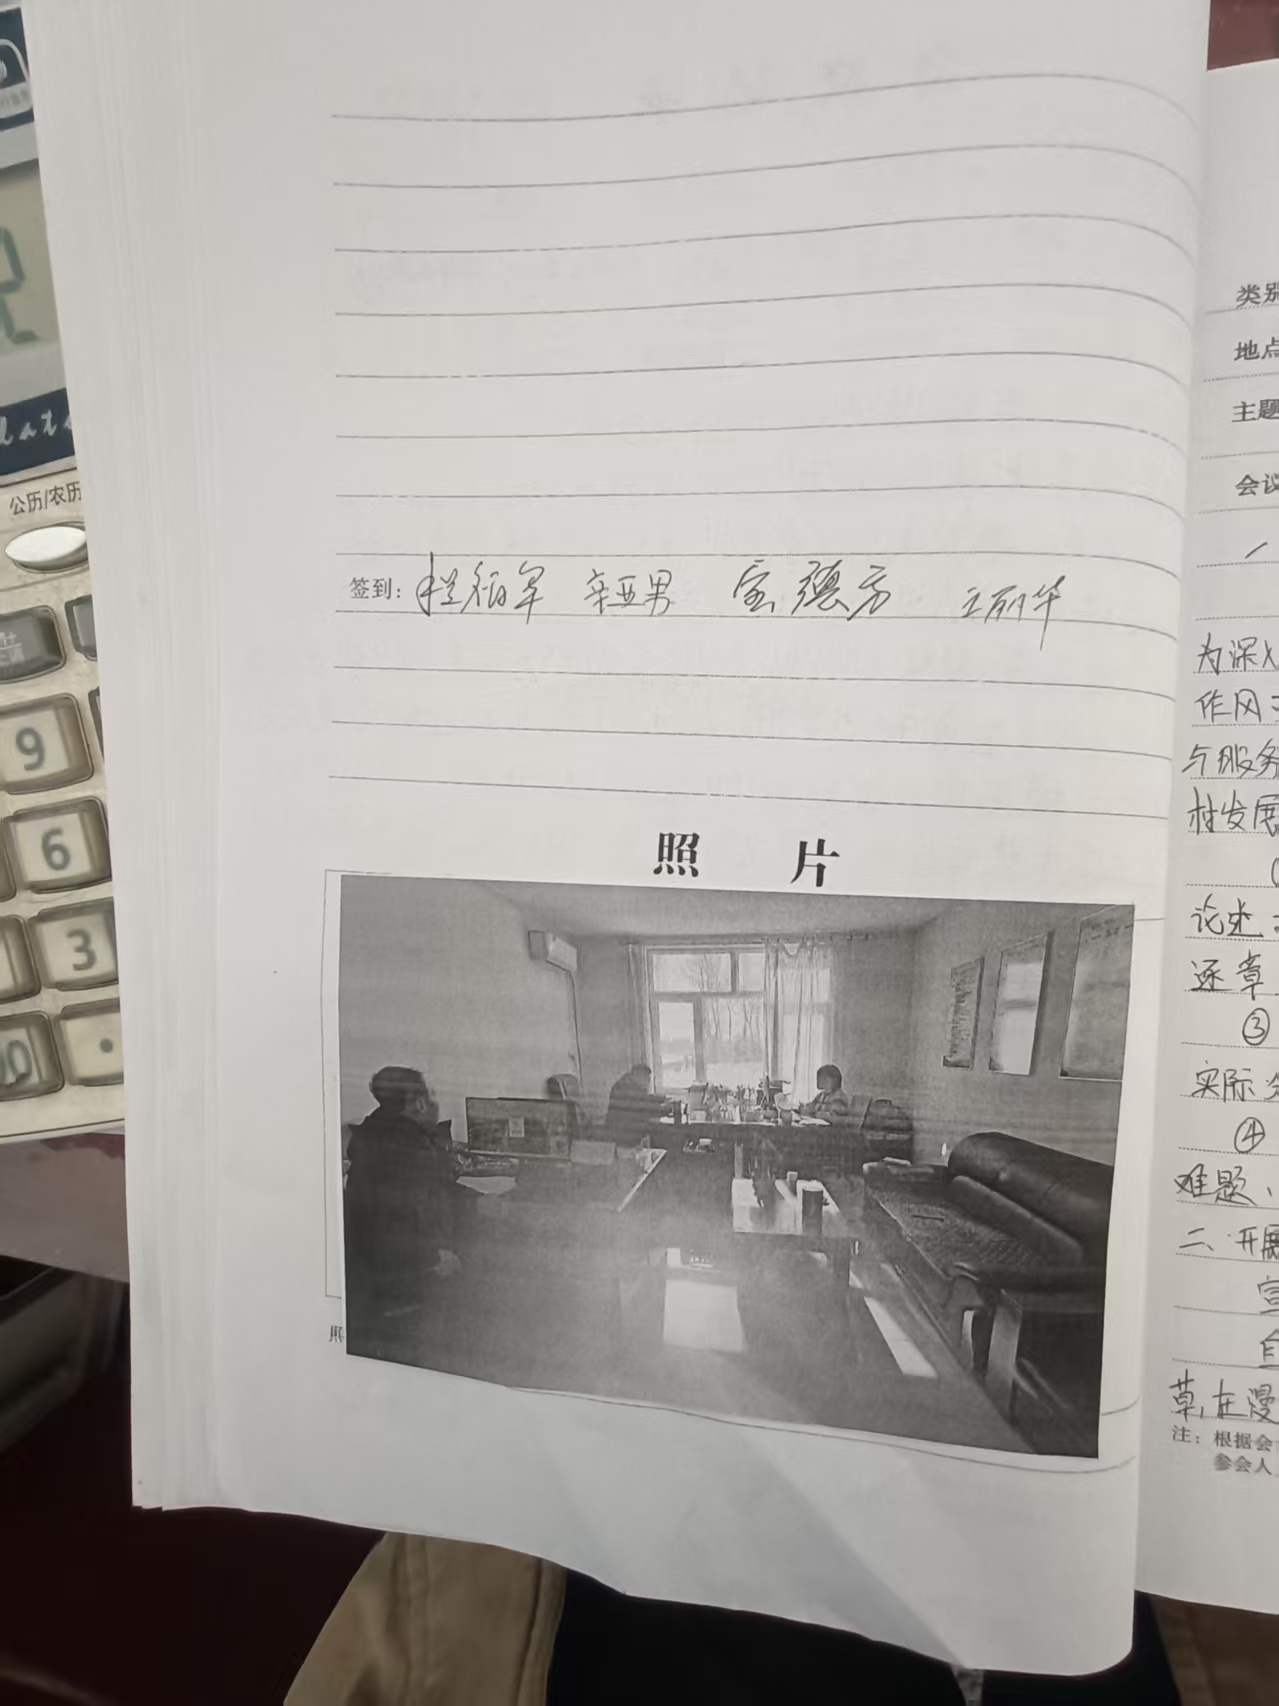 公历/农历
9
6
3
签到: 辛亚男 德方 王丽华
照 片
照
类别
地点
主题
会议
为深入
作风
与服务
村发展
论述
逐章
③
实际
④
难题、
二、开展
草,在漫
注: 根据会
参会人